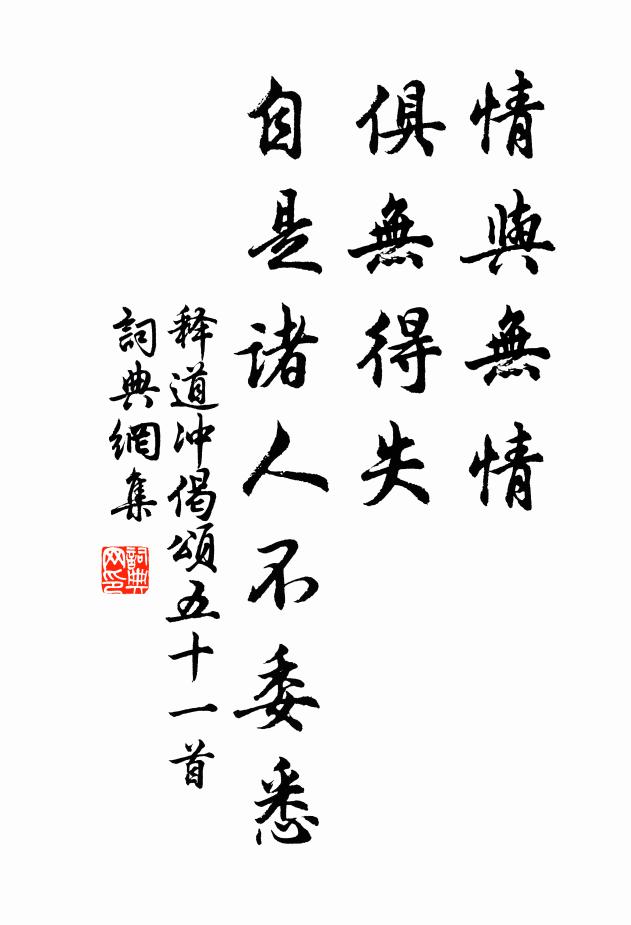 情與無情
俱無得失
自是諸人不委悉
释道沖偈頌五十一首
詞典網集
詞典网印